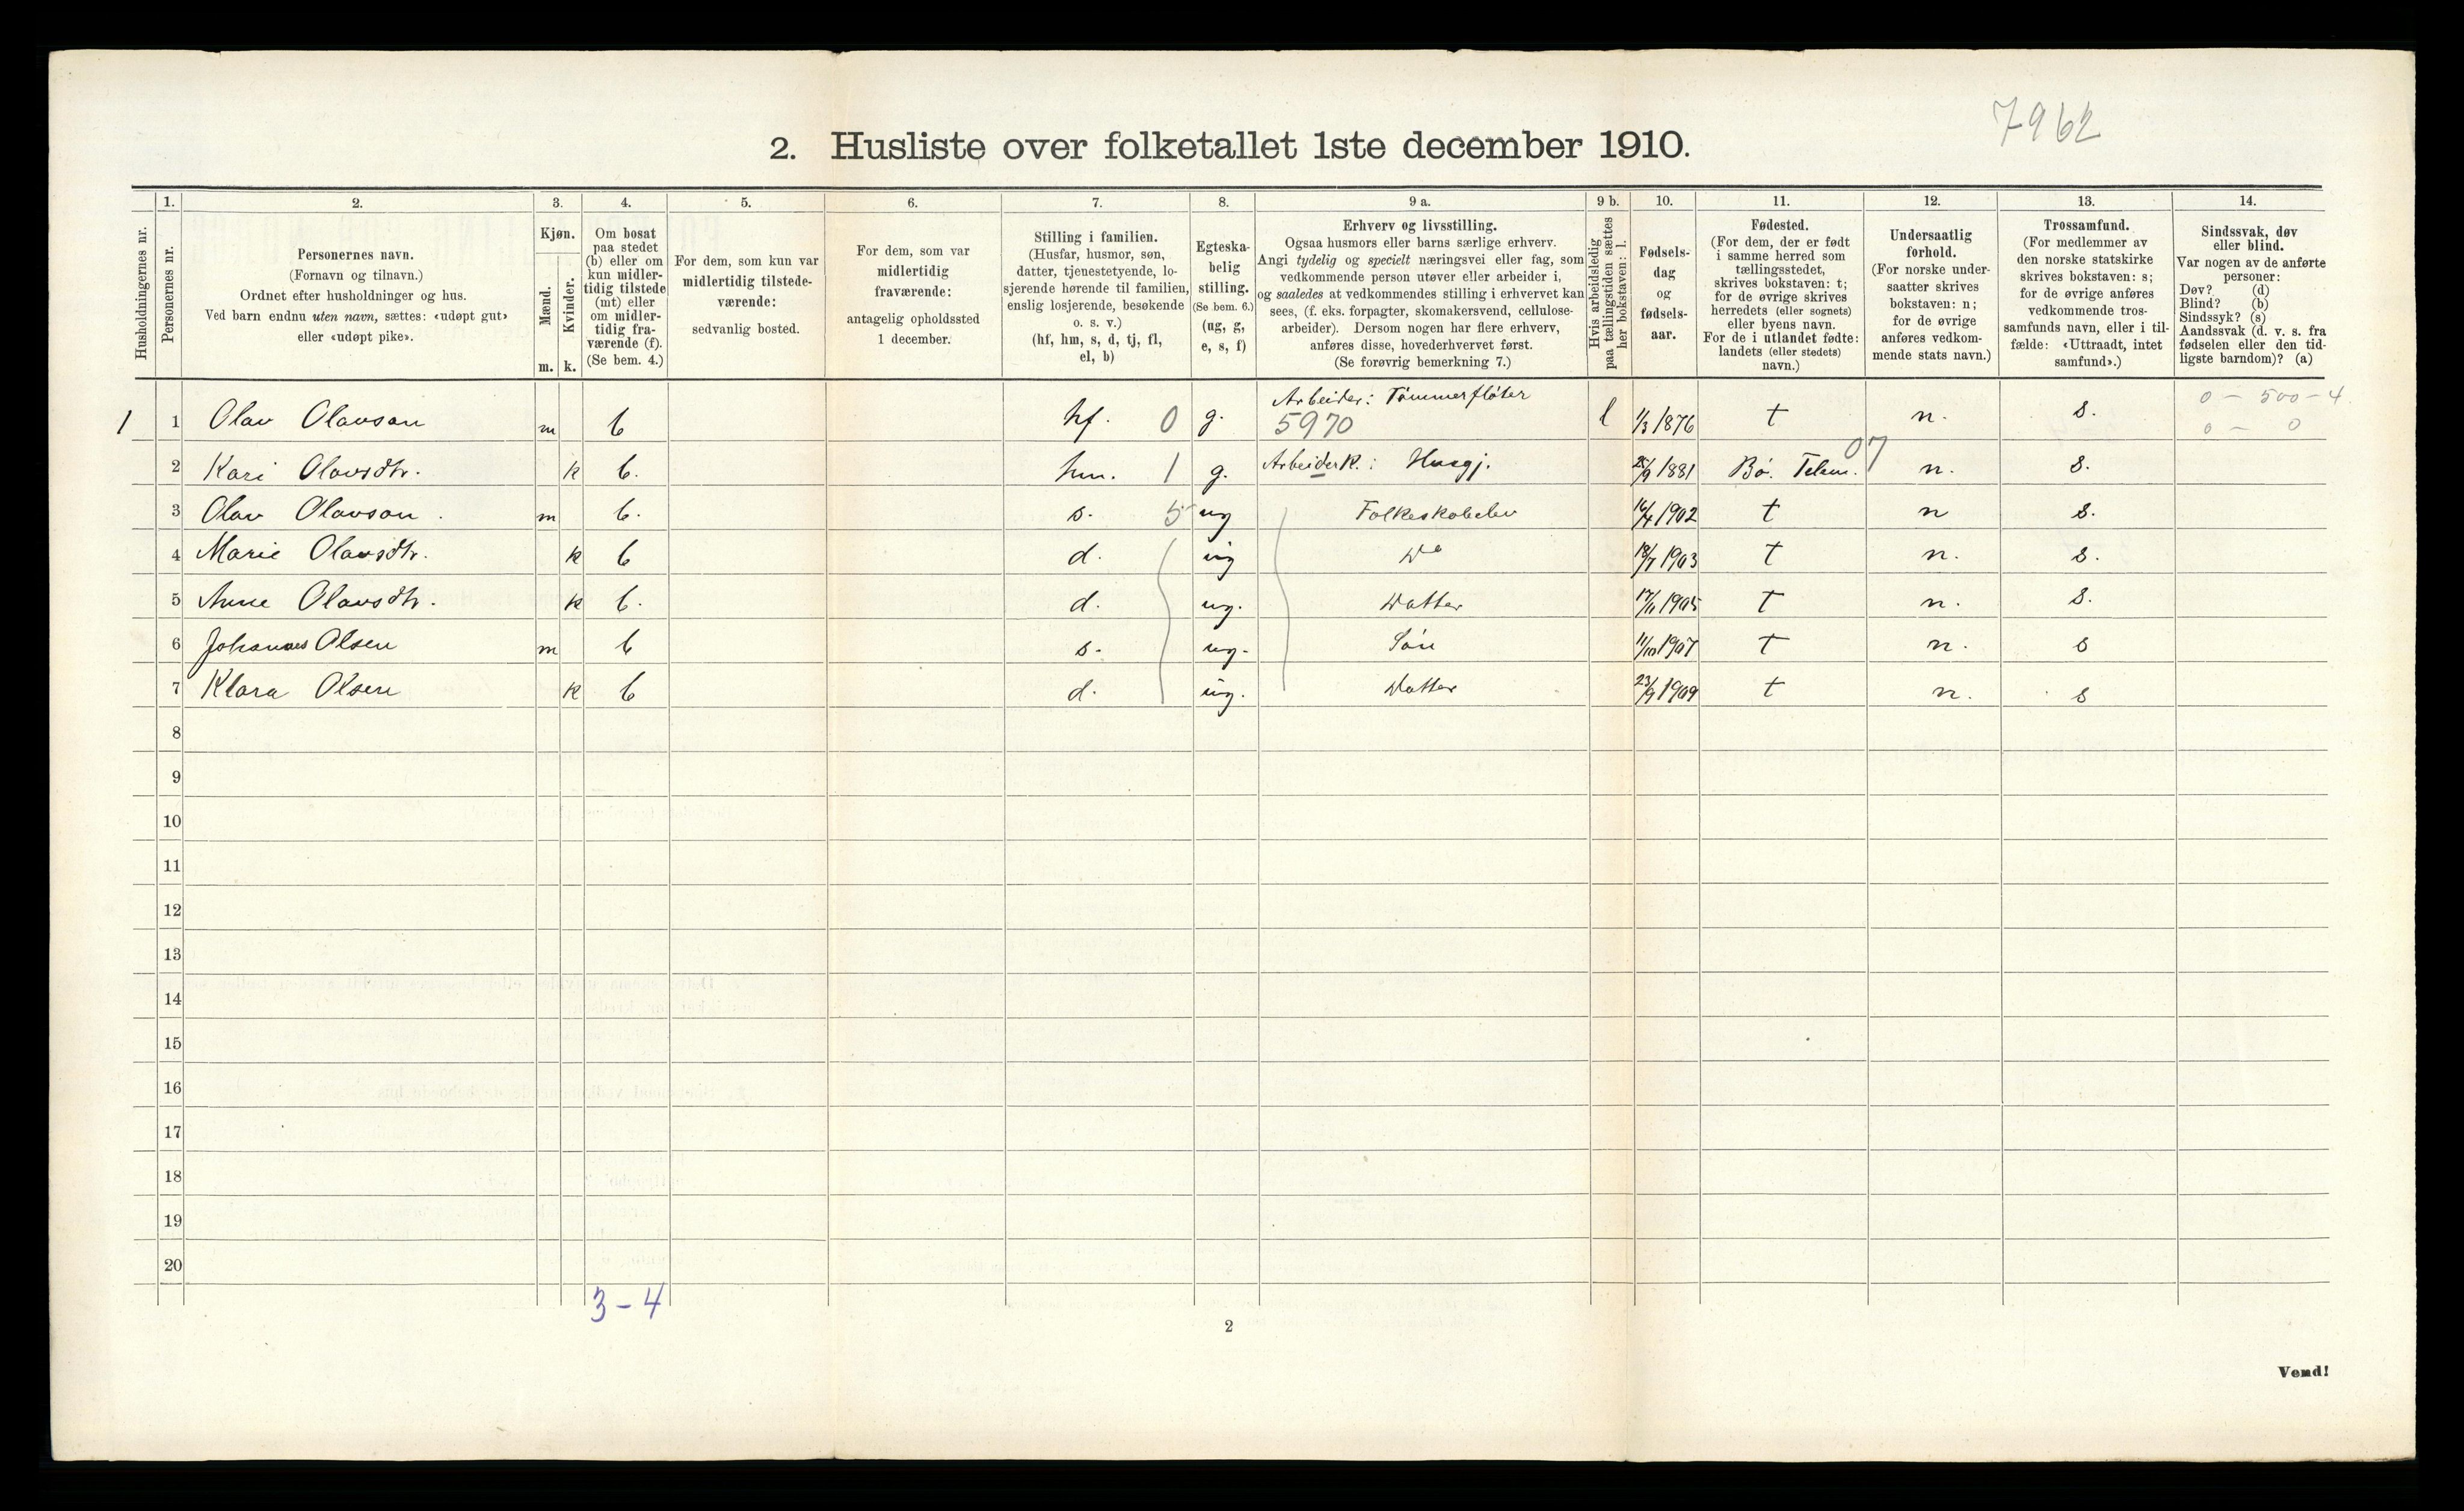 7962
2. Husliste over folketallet 1ste december 1910.
Husholdningernes nr.
1.
Personernes nr.
2.
Personernes navn.
(Fornavn og tilnavn.)
Ordnet efter husholdninger og hus.
Ved barn endnu uten navn, sættes: «udøpt gut»
eller «udøpt pike».
3.
Kjøn.
Mænd.
Kvinder.
m. k.
4.
Om bosat
paa stedet
(b) eller om
kun midler-
tidig tilstede
(mt) eller
om midler-
tidig fra-
værende (f).
(Se bem. 4.)
5.
For dem, som kun var
midlertidig tilstede-
værende:
sedvanlig bosted.
6.
For dem, som var
midlertidig
fraværende:
antagelig opholdssted
1 december.
7.
Stilling i familien.
(Husfar, husmor, søn,
datter, tjenestetyende, lo-
sjerende hørende til familien,
enslig losjerende, besøkende
o. s. v.)
(hf, hm, s, d, tj, fl,
el, b)
8.
Egteska-
belig
stilling.
(Se bem. 6.)
(ug, g,
e, s, f)
9 a.
Erhverv og livsstilling.
Ogsaa husmors eller barns særlige erhverv.
Angi tydelig og specielt næringsvei eller fag, som
vedkommende person utøver eller arbeider i,
og saaledes at vedkommendes stilling i erhvervet kan
sees, (f. eks. forpagter, skomakersvend, cellulose-
arbeider). Dersom nogen har flere erhverv,
anføres disse, hovederhvervet først.
(Se forøvrig bemerkning 7.)
9 b.
Hvis arbeidsledig
paa tællingstiden sættes
her bokstaven: l.
10.
Fødsels-
dag
og
fødsels-
aar.
11.
Fødested.
(For dem, der er født
i samme herred som
tællingsstedet,
skrives bokstaven: t;
for de øvrige skrives
herredets (eller sognets)
eller byens navn.
For de i utlandet fødte:
landets (eller stedets)
navn.)
12.
Undersaatlig
forhold.
(For norske under-
saatter skrives
bokstaven: n;
for de øvrige
anføres vedkom-
mende stats navn.)
13.
Trossamfund.
(For medlemmer av
den norske statskirke
skrives bokstaven: s;
for de øvrige anføres
vedkommende tros-
samfunds navn, eller i til-
fælde: «Uttraadt, intet
samfund».)
14.
Sindssvak, døv
eller blind.
Var nogen av de anførte
personer:
Døv? (d)
Blind? (b)
Sindssyk? (s)
Aandssvak (d. v. s. fra
fødselen eller den tid-
ligste barndom)? (a)
1 1 Olav Olavson m b hf. 0 g. Arbeider: Tømmerfløter 5970 l 1/3 1876 t n. s. 0 - 500 - 4. 0 - 0
2 Kari Olavsdtr. k b. hm. 1 g. ArbeiderR.: Husgj. 25/9 1881 Bø. Telem. 07 n. s.
3 Olav Olavson. m b. s. 5 ug Folkeskoleelev 16/4 1902 t n s.
4 Marie Olavsdtr. k b d. ug Do 18/7 1903 t n. s.
5 Anne Olavsdtr. k b. d. ug. Datter 17/11 1905 t n. s.
6 Johannes Olsen m b s. ug. Søn 11/10 1907 t n. s
7 Klara Olsen k b d. ug. Datter 23/9 1909 t n. s
8
9
10
11
12
13
14
15
16
17
18
19
20
3 - 4
2
Vend!